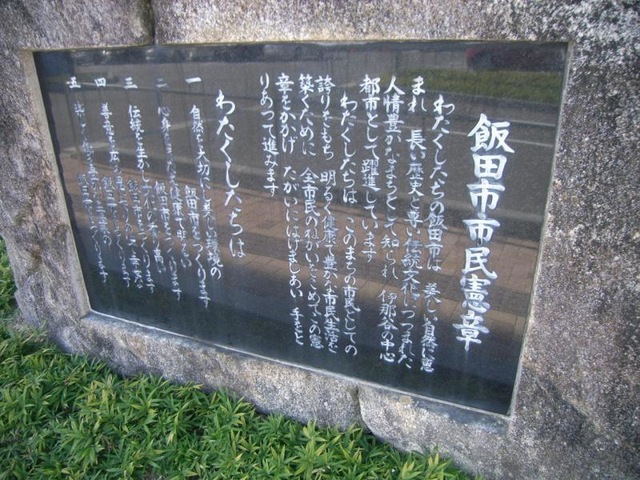 飯田市市民憲章
わたくしたちの飯田市は 美しい自然に恵
まれ 長い歴史と尊い伝統文化につつまれた
人情豊かなまちとして知られ 伊那谷の中心
都市として躍進しています
わたくしたちは このまちの市民としての
誇りをもち 明るく健康で豊かな市民生活を
築くために 全市民のねがいをこめてこの憲
章をかかげ たがいにはげましあい 手をと
りあって進みます
わたくしたちは
一 自然を大切にし 美しい環境の
飯田市をつくります
二 心身をきたえ 健康で明るい
飯田市をつくります
三 伝統を生かし 文化の香り高い
飯田市をつくります
四 善意を
五